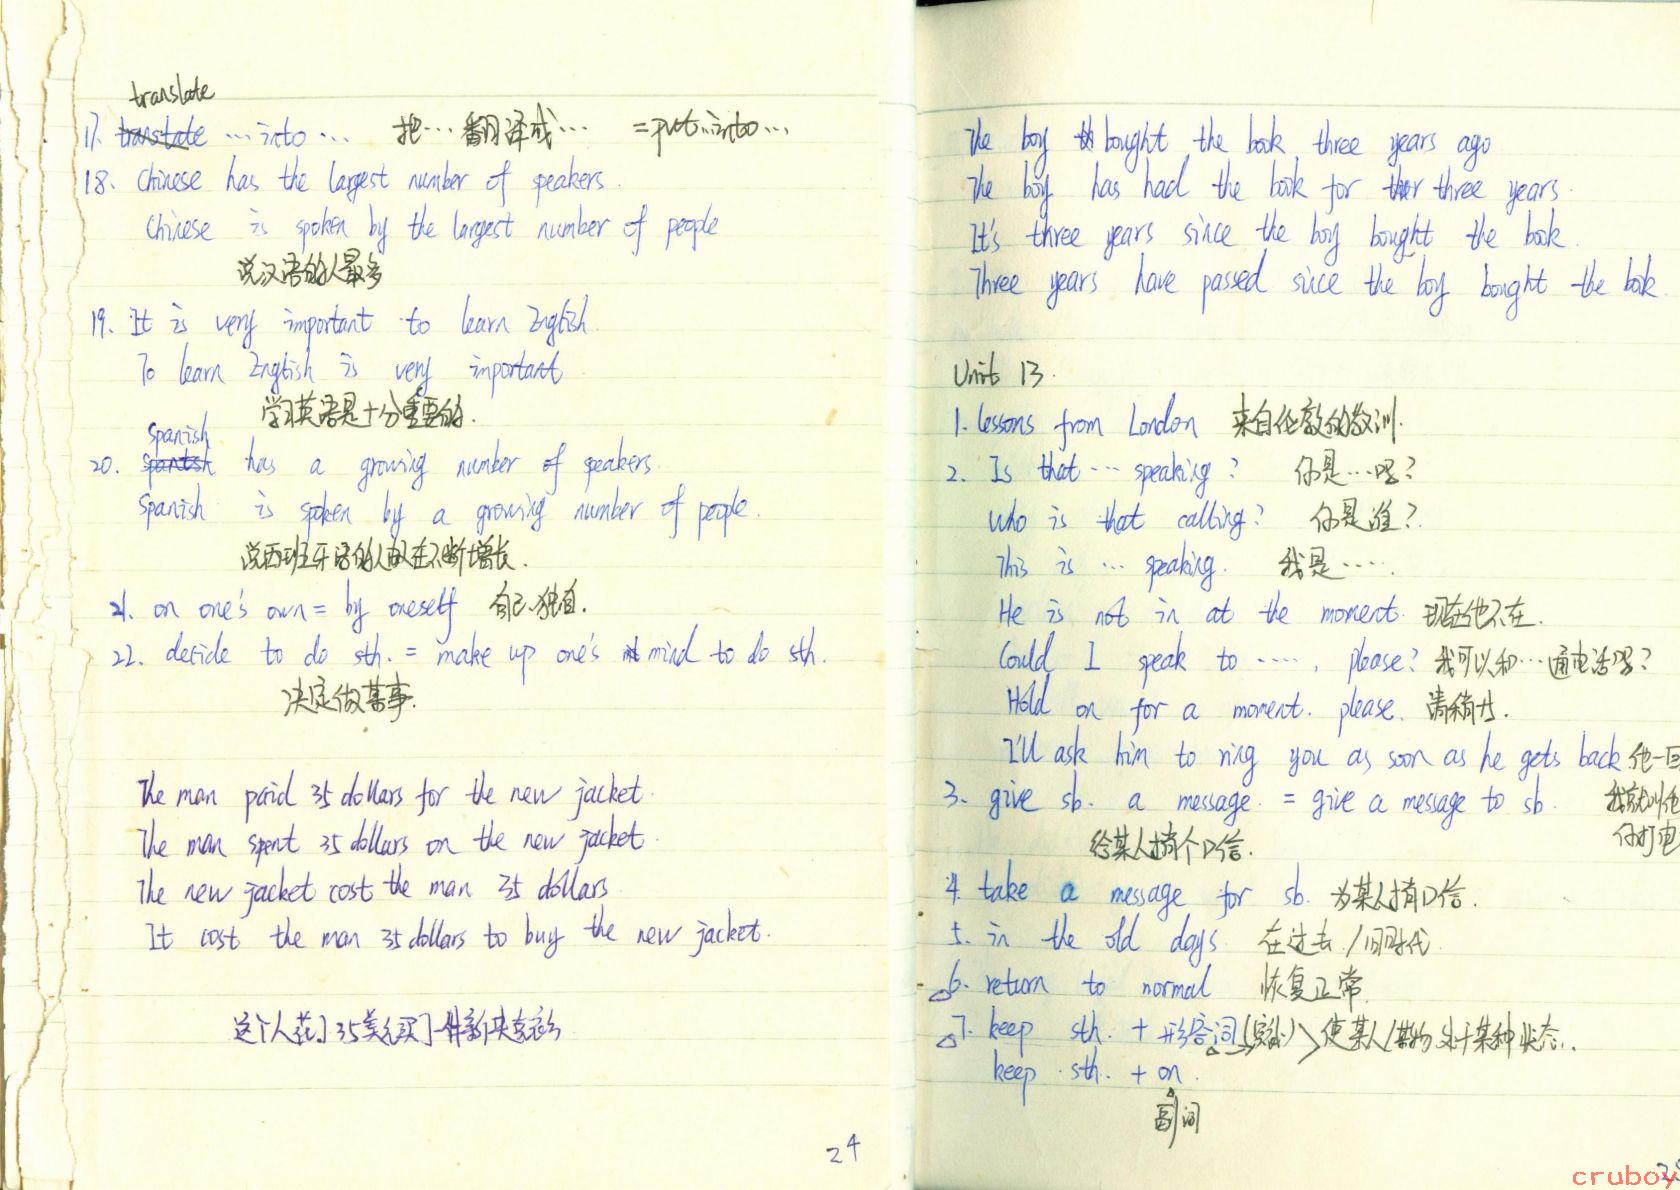 translate
17. translate ... into ... 把...翻译成... =put...into...
18. Chinese has the largest number of speakers.
Chinese is spoken by the largest number of people
说汉语的人最多
19. It is very important to learn English.
To learn English is very important
学习英语是十分重要的.
Spanish
20. has a growing number of speakers.
Spanish is spoken by a growing number of people.
说西班牙语的人数在不断增长.
21. on one's own = by oneself 自己,独自.
22. decide to do sth. = make up one's mind to do sth.
决定做某事.
The man paid 35 dollars for the new jacket.
The man spent 35 dollars on the new jacket.
The new jacket cost the man 35 dollars.
It cost the man 35 dollars to buy the new jacket.
这个人花了35美元买了一件新夹克衫
24
The boy bought the book three years ago
The boy has had the book for three years.
It's three years since the boy bought the book.
Three years have passed since the boy bought the book.
Unit 13.
1. lessons from London 来自伦敦的教训.
2. Is that ... speaking? 你是...吗?
Who is that calling? 你是谁?
This is ... speaking. 我是......
He is not in at the moment. 现在他不在.
Could I speak to ......, please? 我可以和...通电话吗?
Hold on for a moment. please. 请稍等.
I'll ask him to ring you as soon as he gets back 他一回
3. give sb. a message. = give a message to sb. 我就叫他
给某人捎个口信. 你打电
4. take a message for sb. 为某人捎口信.
5. in the old days. 在过去/旧时代.
6. return to normal 恢复正常
7. keep sth. + 形容词(宾补) 使某人/某物处于某种状态..
keep sth. + on.
副词
cruboy